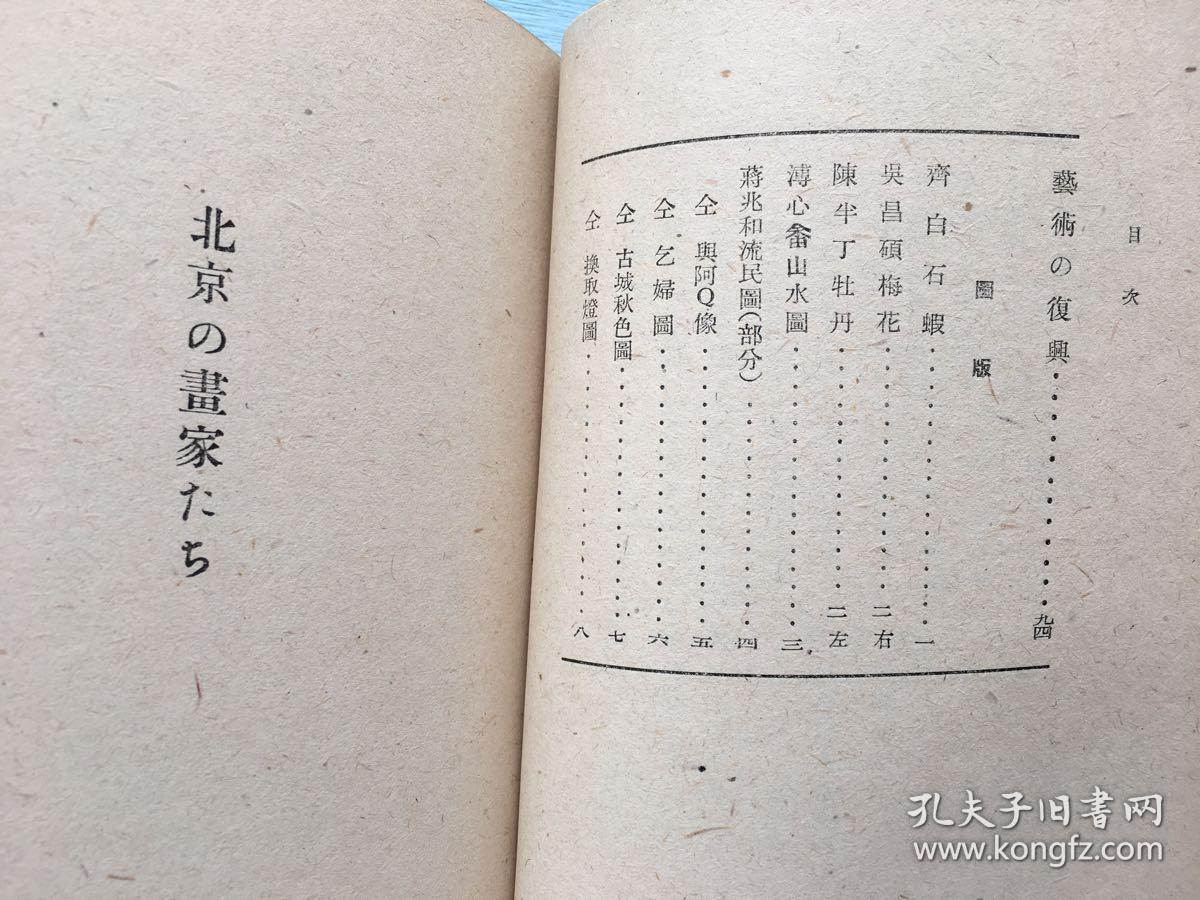 目次
藝術の復興・・・・・・・・・・・・九四
圖版
齊白石蝦・・・・・・・・・・・・一
吳昌碩梅花・・・・・・・・・・・・二右
陳半丁牡丹・・・・・・・・・・・・二左
溥心畬山水圖・・・・・・・・・・・・三
蔣兆和流民圖(部分)・・・・・・・・・・・・四
仝 與阿Q像・・・・・・・・・・・・五
仝 乞婦圖・・・・・・・・・・・・六
仝 古城秋色圖・・・・・・・・・・・・七
仝 換取燈圖・・・・・・・・・・・・八
北京の畫家たち
孔夫子旧书网
www.kongfz.com